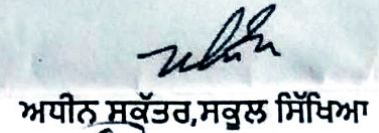 ਅਧੀਨ ਸਕੱਤਰ,ਸਕੂਲ ਸਿੱਖਿਆ